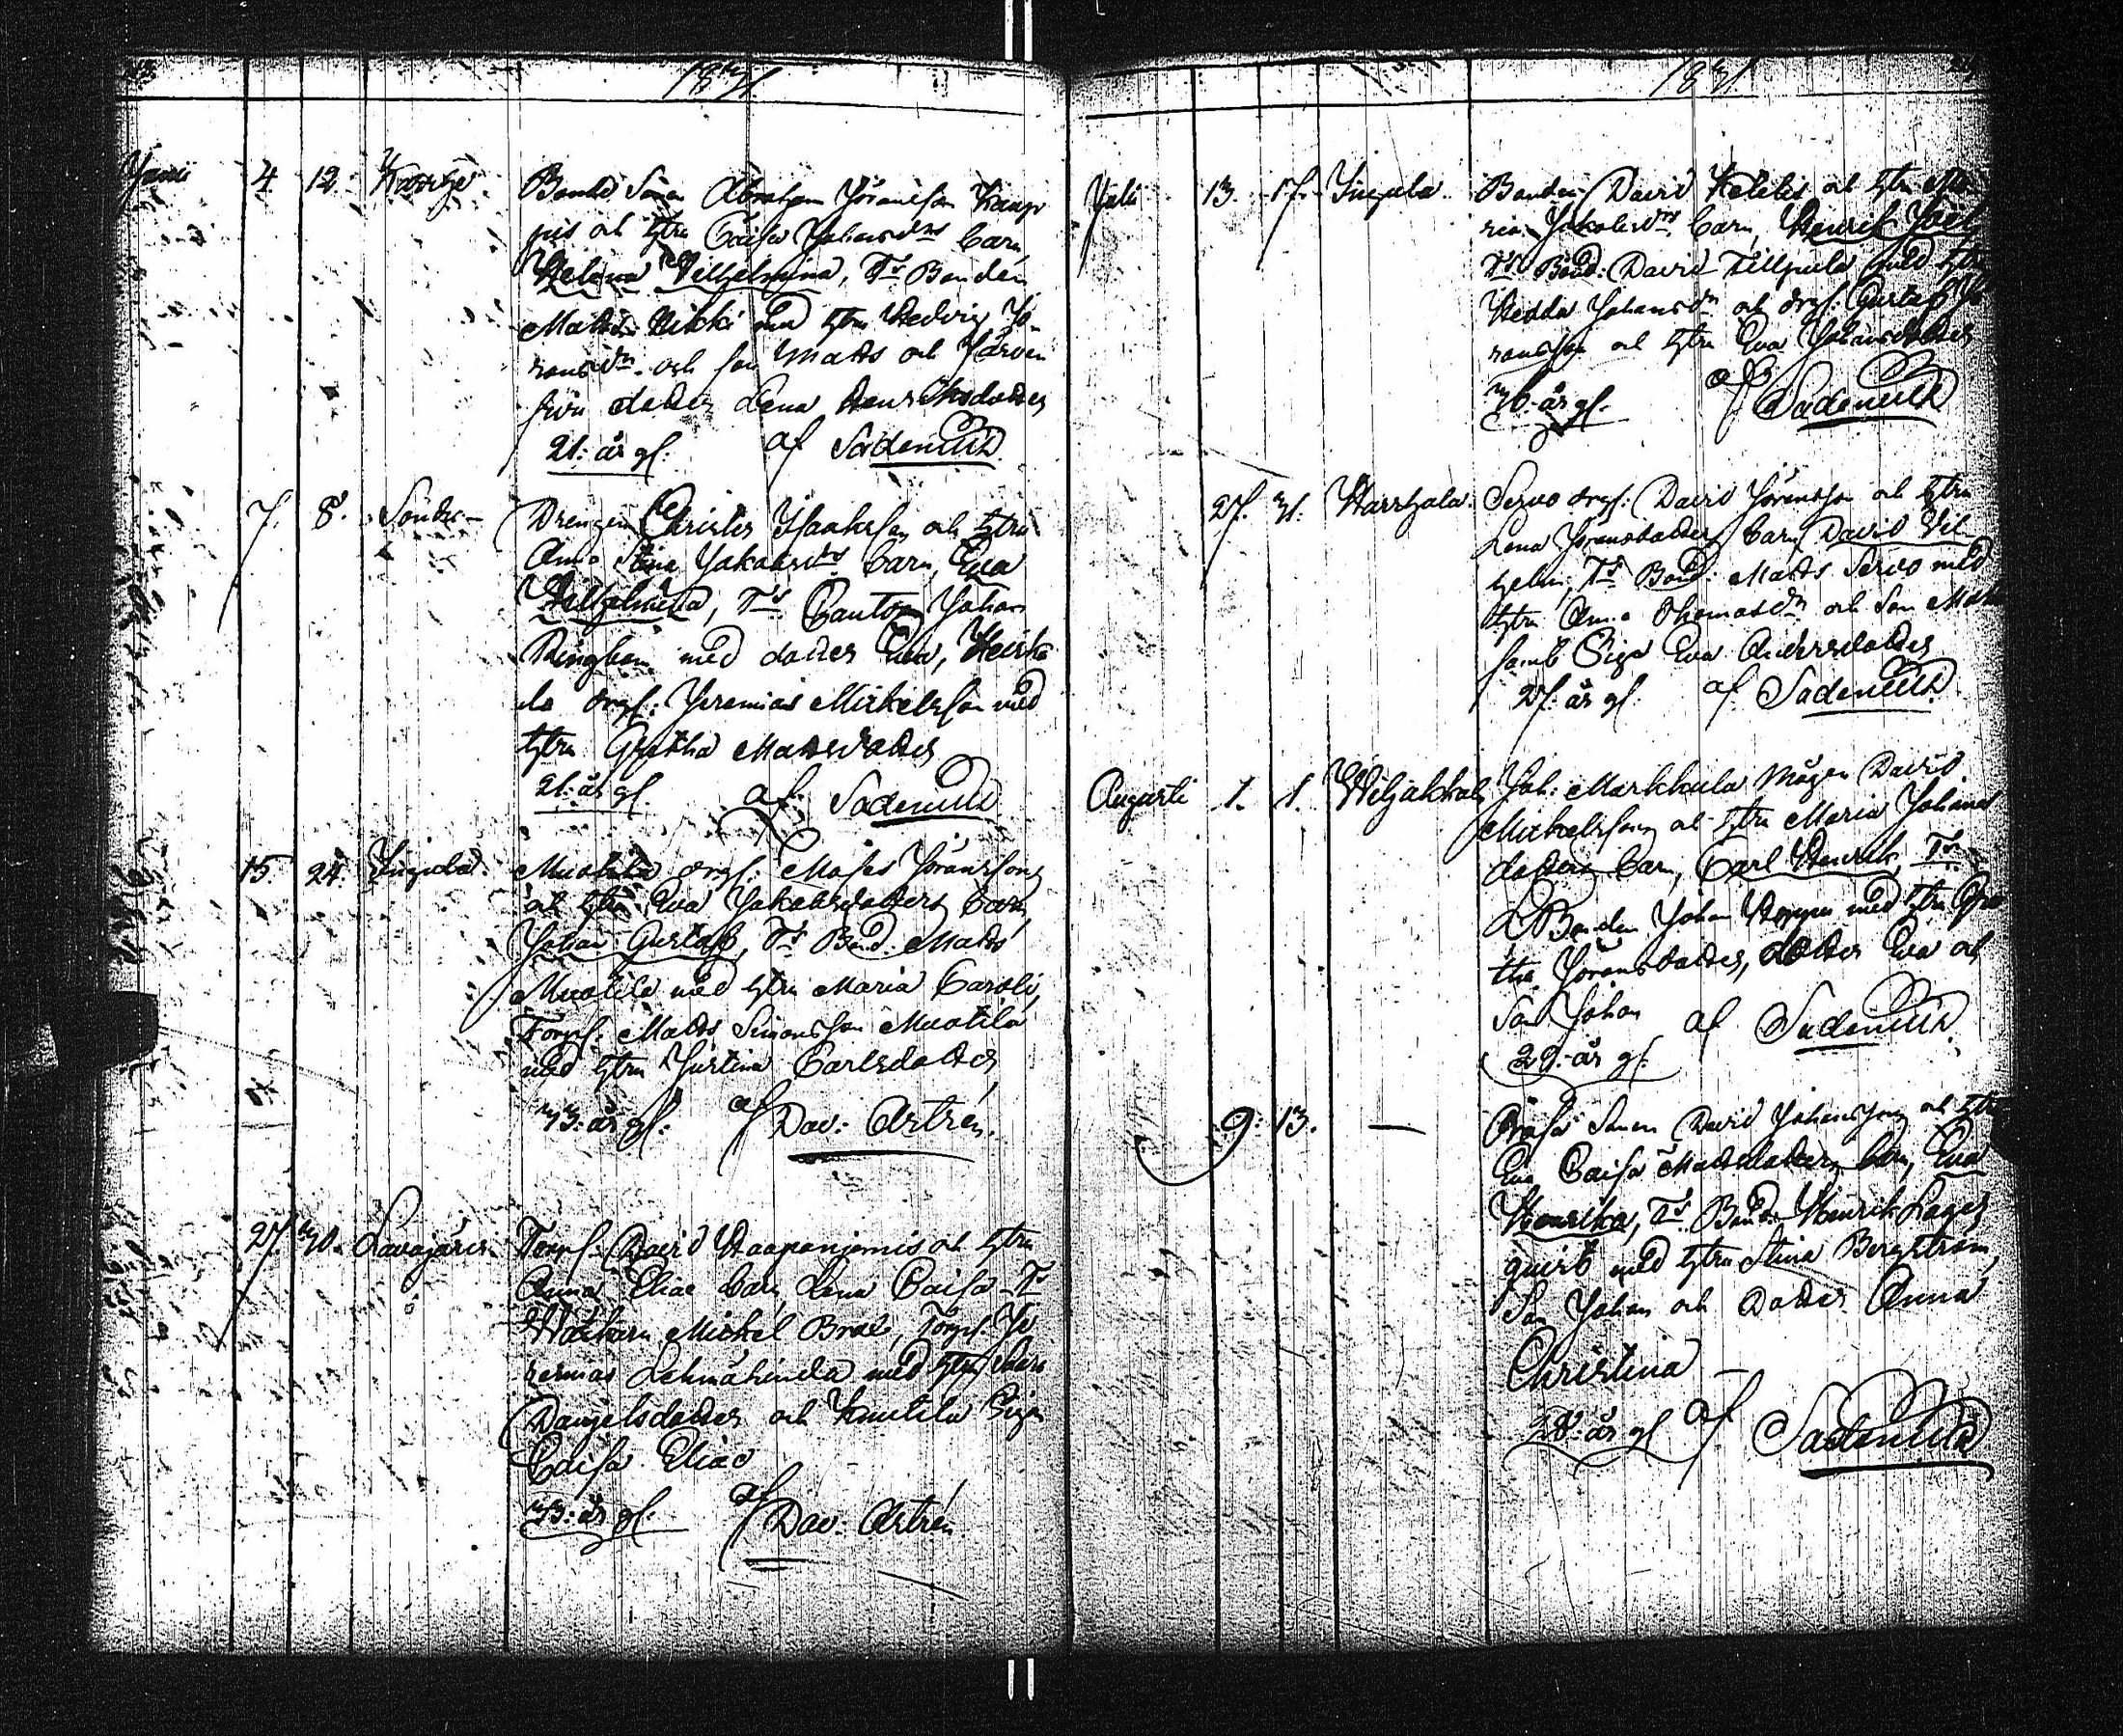 1831.
Junii 4. 12. Bonde Sonen Abraham Jöransson Kaup
pis och hstru Caisa Johansdrs barn,
Helena Wilhelmina, Ts Bonden
Matts Nikki med hstru Hedvig Jö-
ransdr och son Matts och Järven
dotter Lena Henriksdotter
21: år gl. af Sadenius
7. 8. Drengen Christer Isaaksson och hstru
Anna Stina Jakobsdrs barn, Eva
Wilhelmina, Ts Cantor Johan
Ringbom med dotter Eva, Heikki
la drgs: Jeremias Mickelsson med
hstru Gretha Mattsdotter
21: år gl. af Sadenius
15. 24. Suquila. Muotila drgs: Moses Jöransson
och hstru Eva Jakobsdotters barn,
Johan Gustaf, Ts Bond. Matts
Muotila med hstru Maria Caroli,
Torps: Matts Simonsson Muotila
med hstru Justina Carlsdotter
33: år gl. af Dav: Astrén.
27. 30. Lavajärvi. Torps: David Haapaniemis och hstru
Anna Eliae barn Lena Caisa – Ts
Mickel Torps. Je
remias Lehmähinda med hstru
Danjelsdotter och Knutila Piga
Caisa Eliae
33: år gl. af Dav: Astrén.
1831.
Julii 13. 17. Bonden David och hstru Ma
ria Jakobsdrs barn, Henrik Joel,
Ts Bond: David Tillpula med hstru
Hedda Johansdr och drgs: Gustaf Jö
ransson och hstru Eva Johansdotter
36: år gl. af Sadenius
27. 31. Harhala. Servo drgs: David Jöransson och hstru
Lena Jöransdotters barn David Vil
helm, Ts Bond: Matts Servo med
hstru Anna Thomasdr och Son Matts
samt Piga Eva Andersdotter
27: år gl. af Sadenius
Augusti 1. 1. Wiljakkala Joh: Markkula Mågen David
Mickelsson och hstru Maria Johans
dotters barn, Carl Henrik, Ts
Bonden Johan Hoppu med hstru Gre
tha Jöransdotter, dotter Eva och
Son Johan af Sadenius
29: år gl.
9. 13. — Sonen David Johansson och hstru
Eva Caisa Mattsdotters barn, Eva
Henrika, Ts. Bond: Henrik Lager
quist med hstru Stina Bergström,
Son Johan och Dotter Anna
Christina –
28: år gl af Sadenius